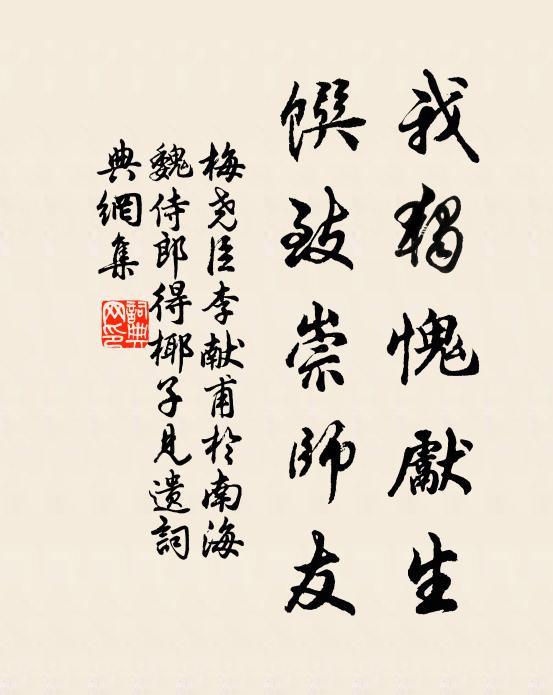 我独愧獻生
饌致崇師友
梅尧臣李献甫於南海
魏侍郎得椰子見遗詞
典網集
詞典
网印